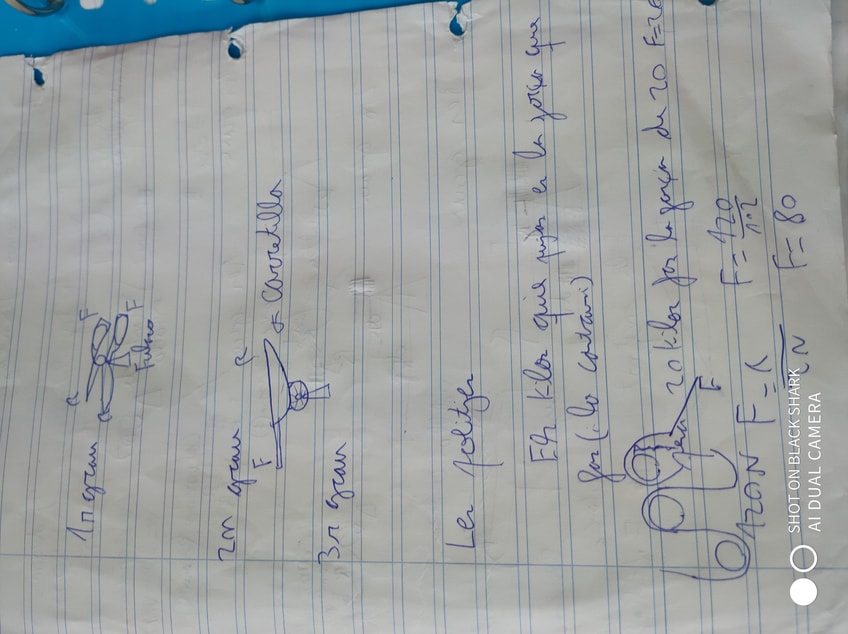 1r grau
R
F
R
F
Fulcro
2n grau
F
R
Carretilla
3r grau
Les politges
Els kilos que puja és la força que
fas (i lo contari)
20 kilos fas la força de 20 F=20
F
120N
F = R
2N
F = 120
1·2
F = 80
SHOT ON BLACK SHARK
AI DUAL CAMERA